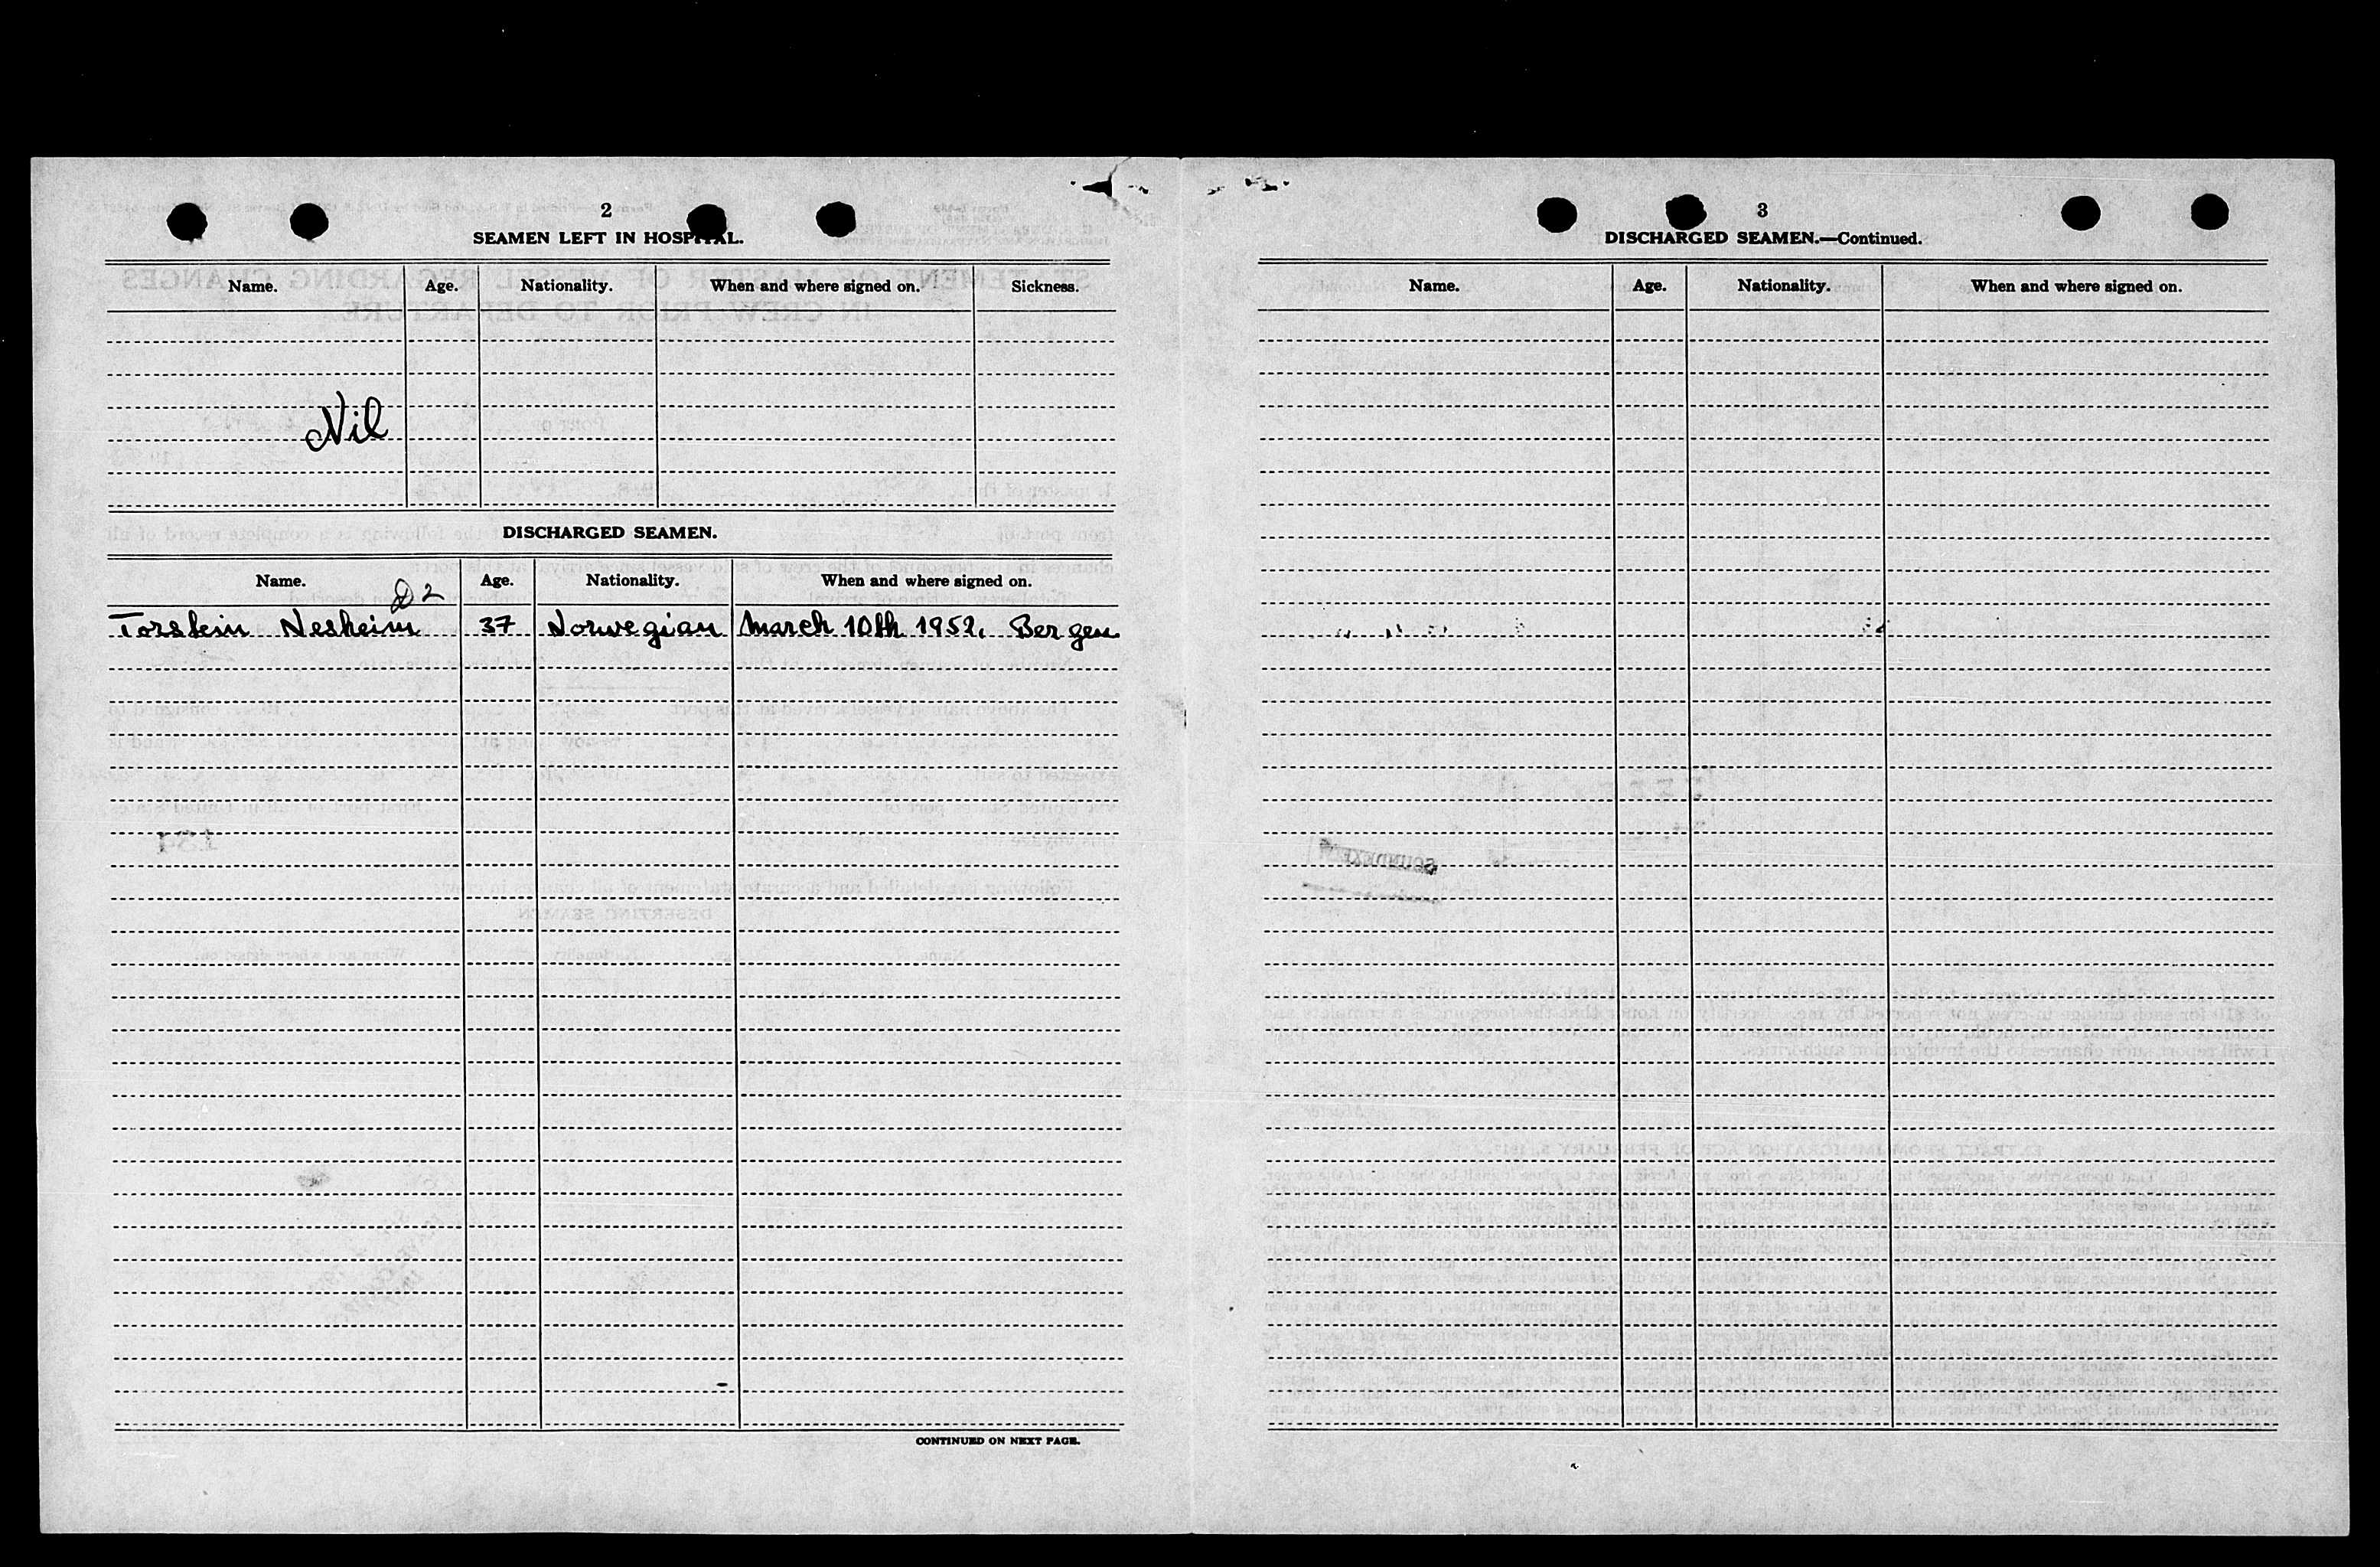 2
SEAMEN LEFT IN HOSPITAL.
Name. Age. Nationality. When and where signed on. Sickness.
Nil
DISCHARGED SEAMEN.
Name. Age. Nationality. When and where signed on.
D2
Torstein Nesheim 37 Norwegian March 10th 1952. Bergen
CONTINUED ON NEXT PAGE.
3
DISCHARGED SEAMEN.—Continued.
Name. Age. Nationality. When and where signed on.